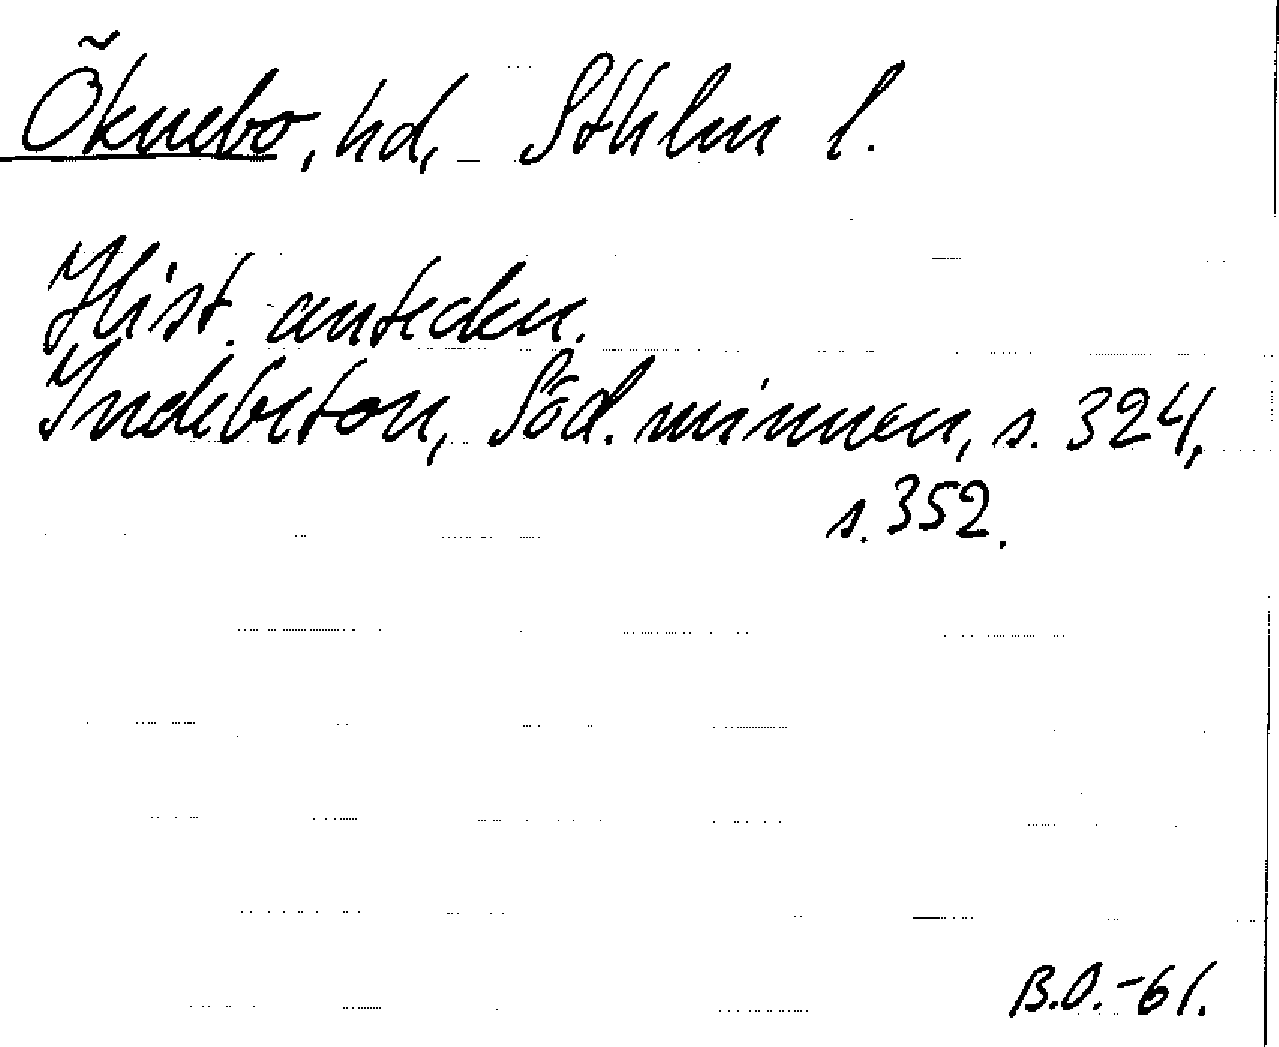 Öknebo, hd, Sthlm l.
Hist. anteckn.
Indebetou, Söd. minnen, s. 324,
s. 352.
B.O.-61.